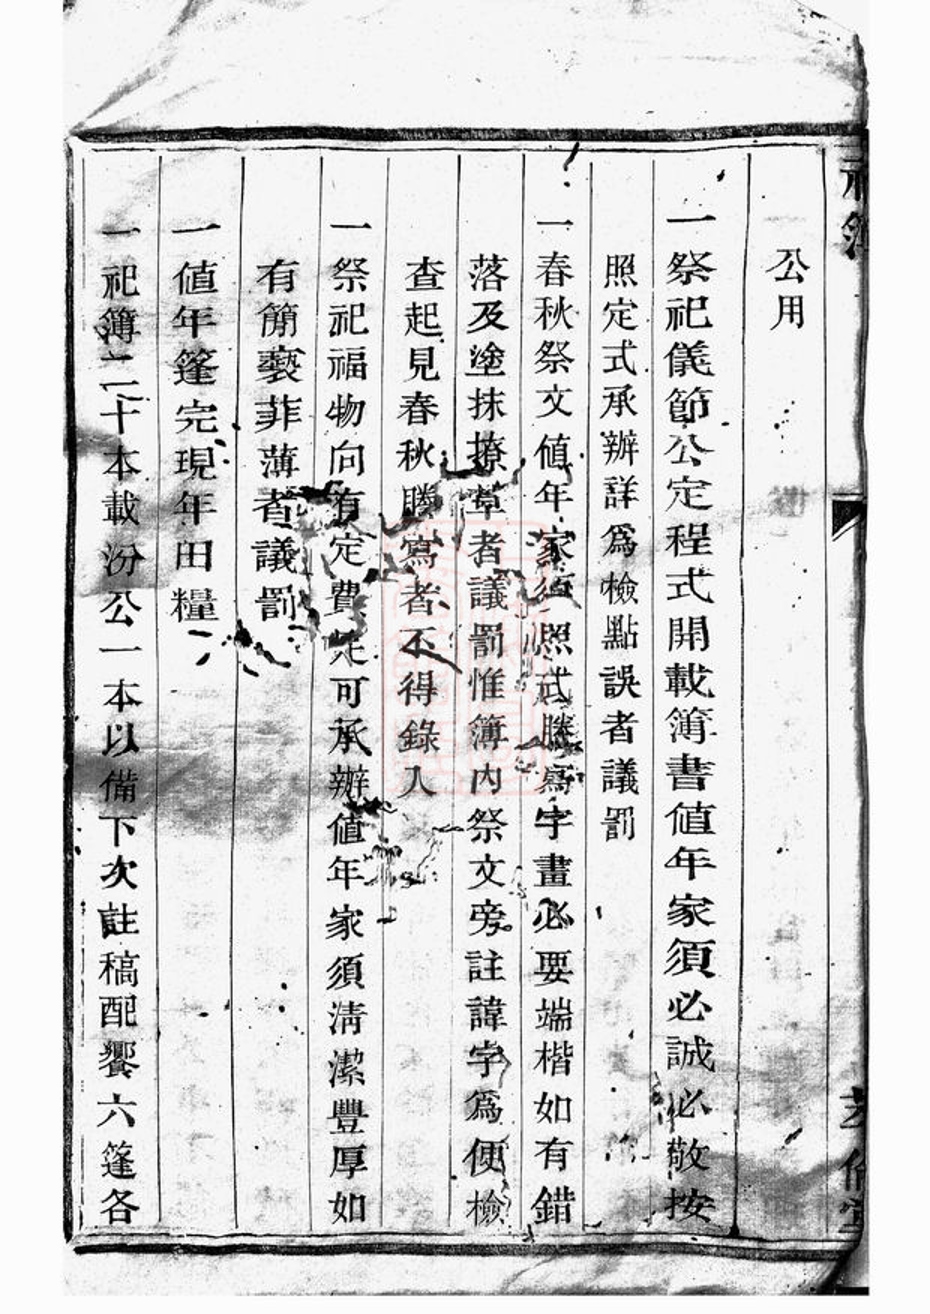 公用
一祭祀儀節公定程式開載簿書值年家須必誠必敬按
照定式承辦詳爲檢點誤者議罰
一春秋祭文值年家須照式謄寫字畫必要端楷如有錯
落及塗抹撩草者議罰惟簿內祭文旁註諱字爲便檢
查起見春秋謄寫者不得錄入
一祭祀福物向有定費儘可承辦值年家須淸潔豐厚如
有簡褻菲薄者議罰
一值年篷完現年田糧
一祀簿二十本載汾公一本以備下次註稿配饗六篷各